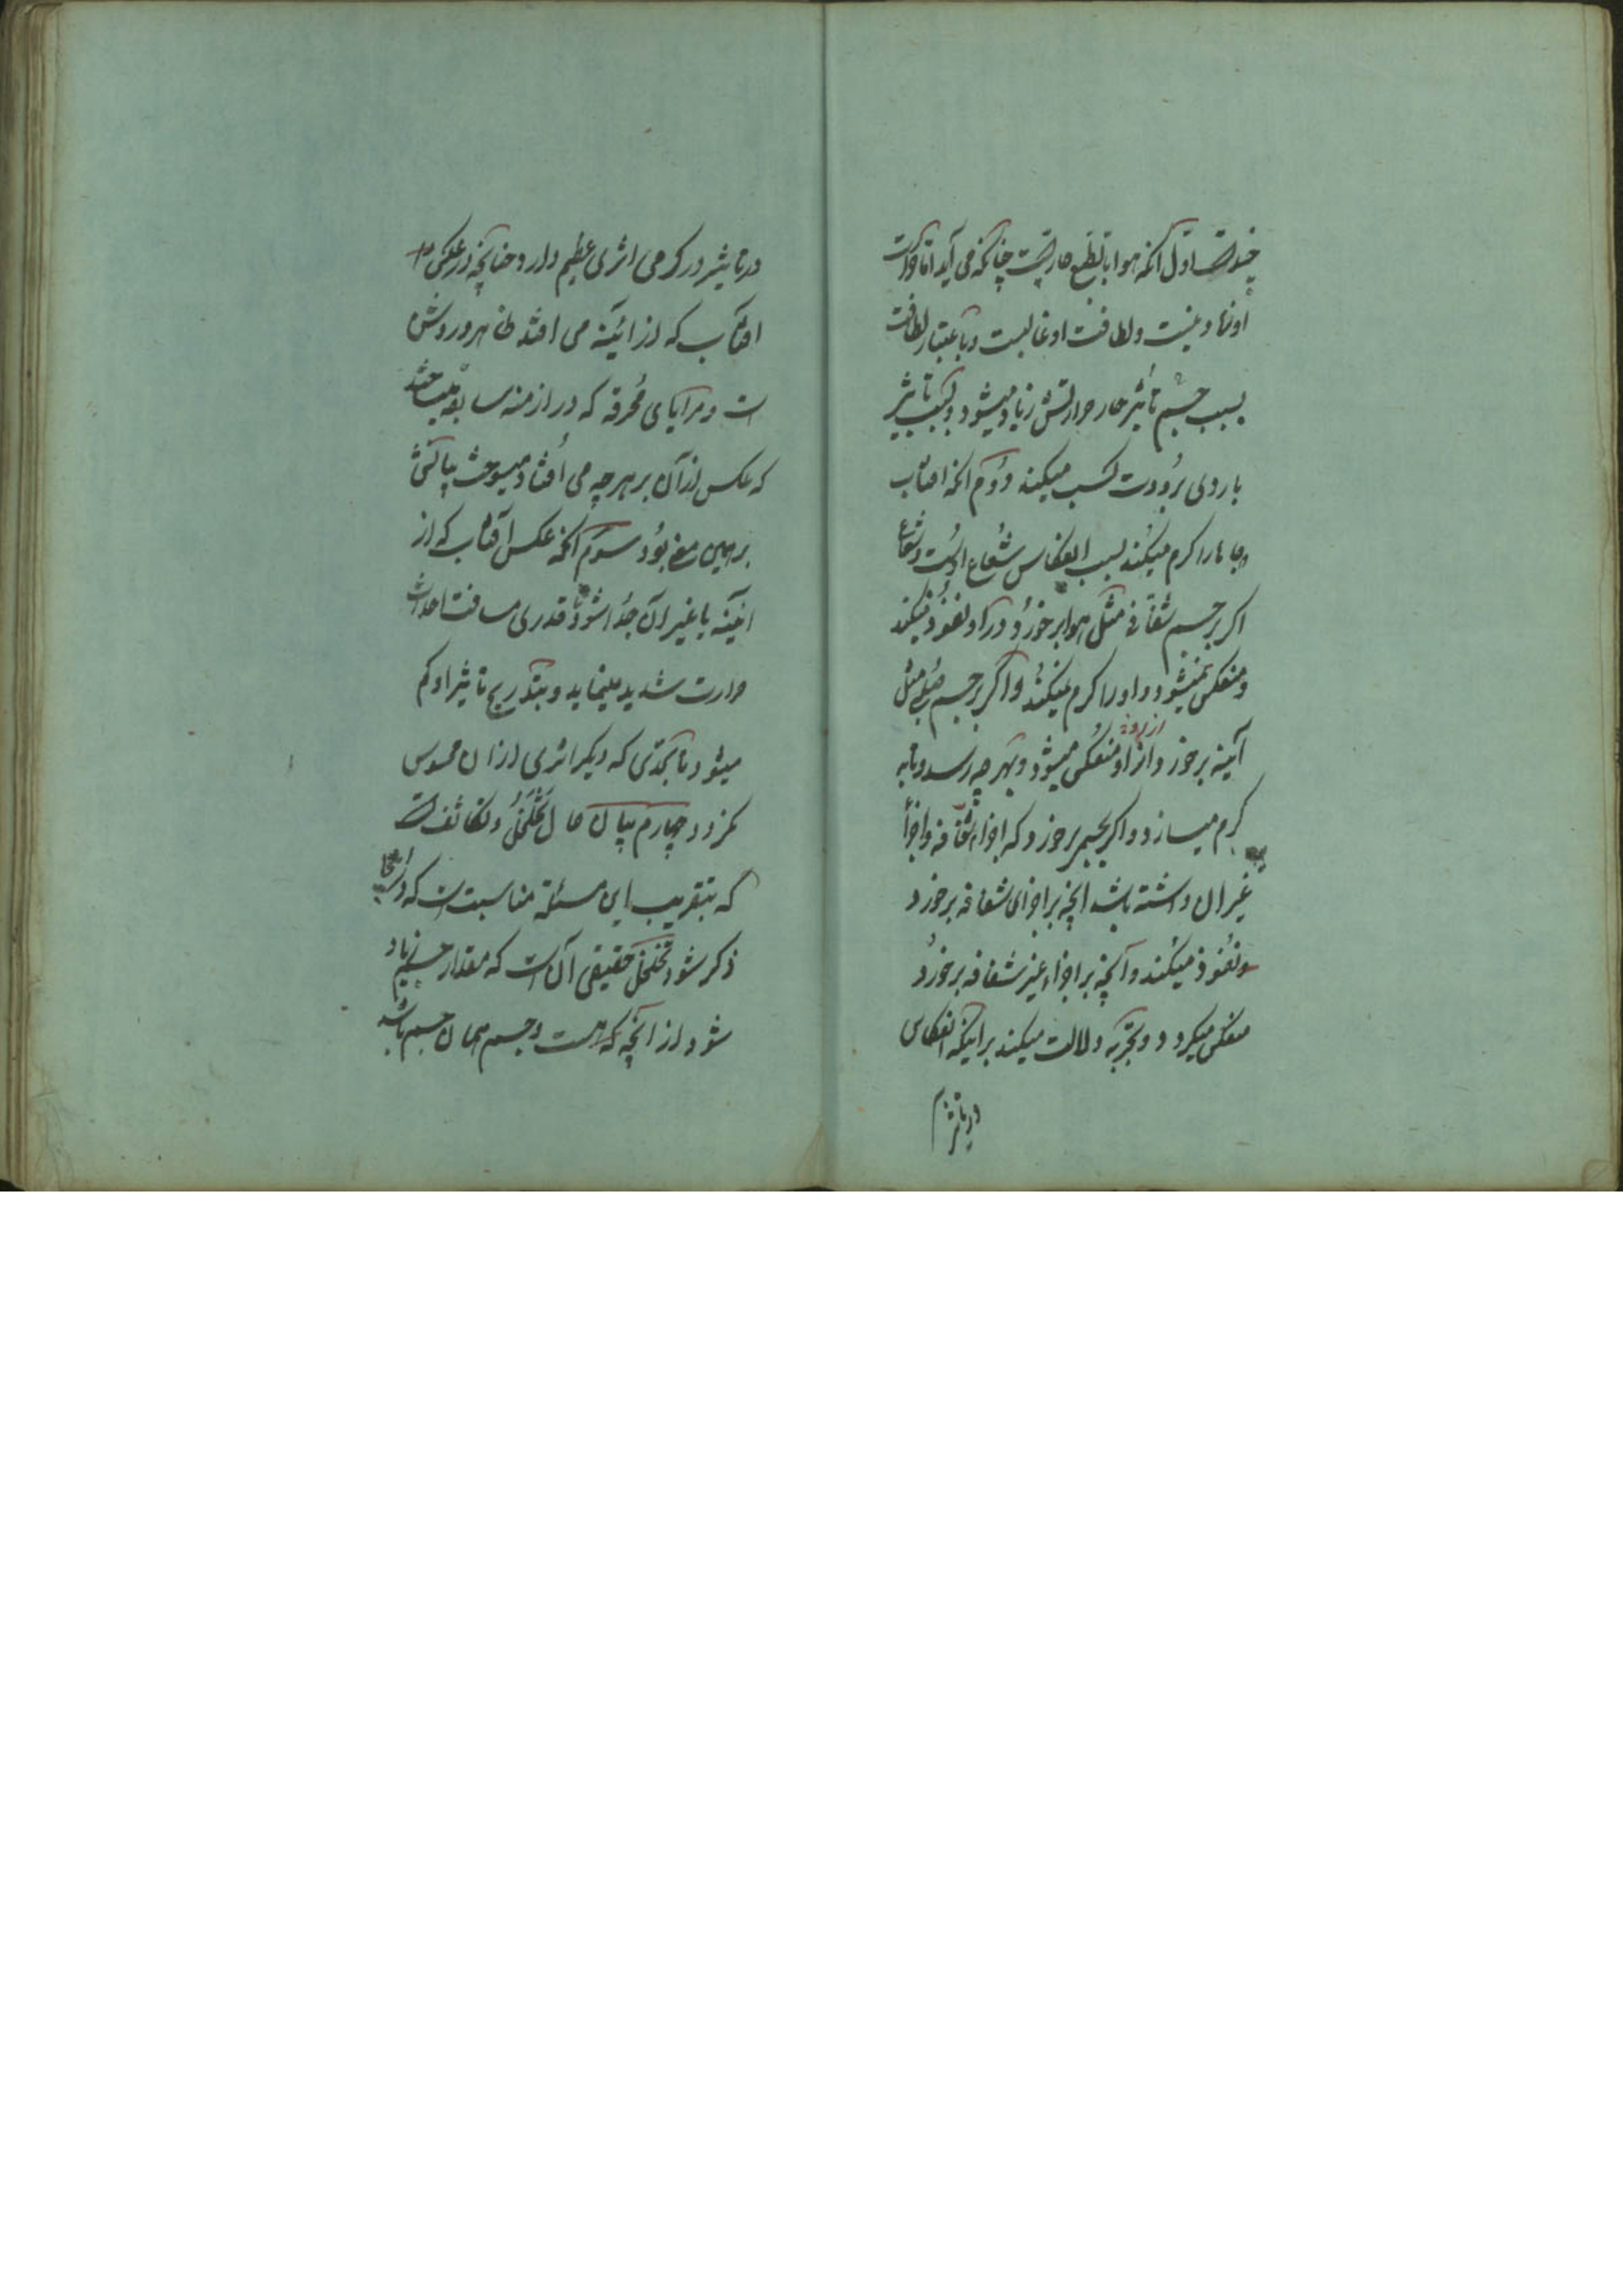 چند است اول آنکه هوا بالطبع حار است چنانکه می آید اما حرارت
او نهاد نیست ولطافت او غالبست وباعتبار لطافت
بسبب جسم تأثیر حار حرارتش زیاد میشود وبسبب تأثیر
باردی برودت کسب میکند دوم آنکه افتاب
جاها را کرم میکند بسبب انعکاس شعاع اوست وشعاع
اکر بر جسم شفافی مثل هوا برخورد در او نفوذ میکند
ومنعکس نمیشود واو را کرم نمیکند واکر بر جسم صلبی مثل
آئینه برخورد از او منعکس میشود وبهر چه رسد وتابد
کرم میسازد واکر بجسمی برخورد که اجزاء شفافه واجزاء
غیر ان داشته باشد انچه بر اجزای شفافه برخورد
نفوذ میکند وآنچه بر اجزاء غیر شفافه برخورد
منعکس میکردد وتجربه دلالت میکند بر اینکه انعکاس
در تأثیر
در تاثیر در کرمی اثری عظیم دارد چنانچه در عکس
افتاب که از ائینه می افتد ظاهر وروشن
است ومرایای محرقه که در ازمنه سابقه میساختند
که عکس از آن بر هر چه می افتاد میسوخت بنا کنش
بر همین معنی بود سوم آنکه عکس آفتاب که از
ائینه یا غیر آن جدا شود تا قدری مسافت احداث
حرارت شدید مینماید وبتدریج تأثیر او کم
میشود تا بحدی که دیکر اثری از ان محسوس
نمیکردد چهارم بیان حال تخلخل وتکاثف است
که بتقریب این مسئله مناسبت است که در اینجا
ذکر شود تخلخل حقیقی آنست که مقدار جسم زیاد
شود از آنچه که هست وجسم همان جسم باشد